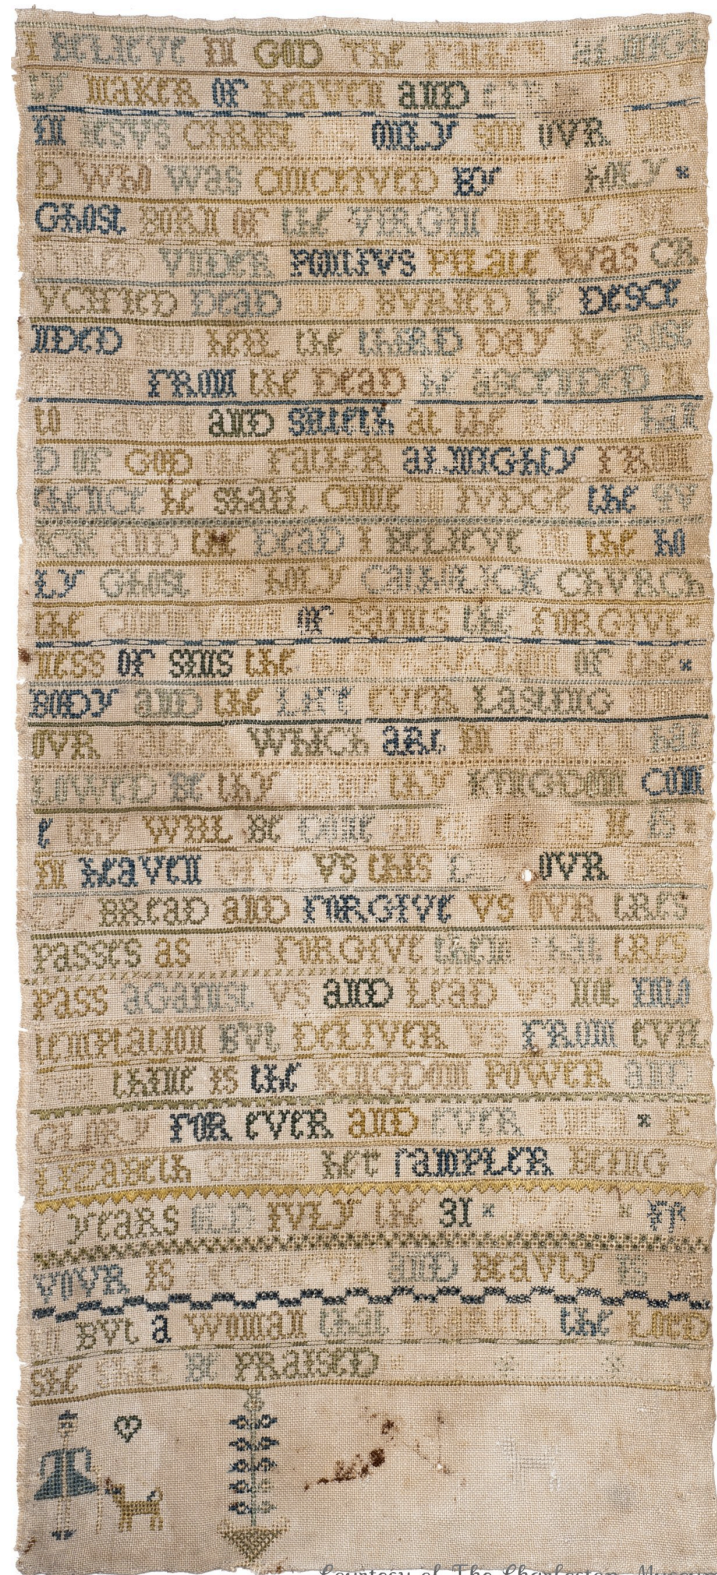 I BELIEVE IN GOD the Father ALMIGH
ty MAKER OF HEAVEN AND
IN JESVS CHRIST ONLY SON OVR
D WHO WAS CONCEIVED BY the HOLY *
GhOST BORN OF the VIRGIN MARY
VNDER PONTIVS PILATE WAS CR
VCIFIED DEAD AND BVRIED he DESCE
NDED INTO HELL the thIRD DAY he RISE
FROM the DEAD he ASCENDED IN
to HEAVEN AND SITTETH at the RIGHT HAN
D OF GOD the FATHER ALMIGHTY FROM
thENCE he SHALL COME to IVDGE the QV
ICK AND the DEAD I BELIEVE IN the HO
LY GhOST the HOLY CATHOLICK ChVRCh
the OF SAINTS the FORGIVE *
NESS OF SINS the RESVRRECTION OF the *
BODY AND the LIFE EVER LASTING
OVR FATHER WHICh ARt IN HEAVEN HAL
LOWED BE thy NAME thy KINGDOM COM
E thy WILL BE DONE IN EARTH AS It IS *
IN HEAVEN GIVE VS thIS OVR
LY BREAD AND FORGIVE VS OVR tRES
PASSES AS WE FORGIVE them that tRES
PASS AGANIST VS AND LEAD VS NOt INtO
tEMPtAtION BVt DELIVER VS FROM EVIL
thINE IS the KINGDOM POWER AND
GLORY FOR EVER AND EVER * E
LIZABEth her SAMPLER BEING
yEARS OLD IVLY the 31 * * FA
VOVR IS DECEITFVL AND BEAVTY IS VA
IN BVt A WOMAN that FEAREth the LORD
ShE BE PRAISED
Courtesy of The Charleston Museum